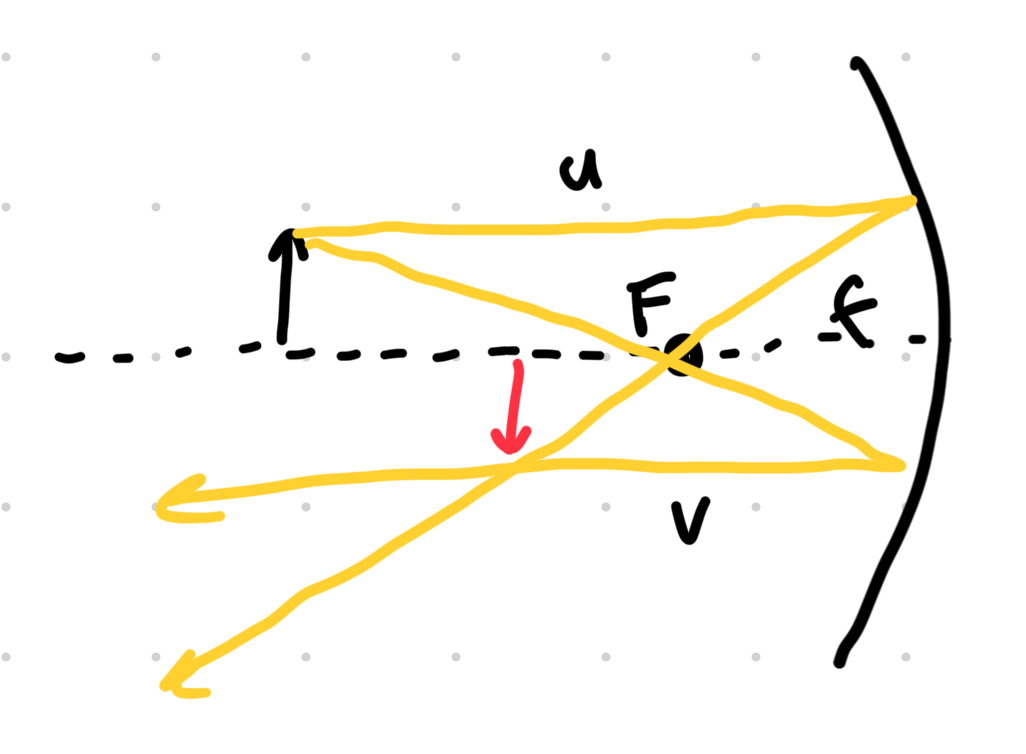 u
F
f
v